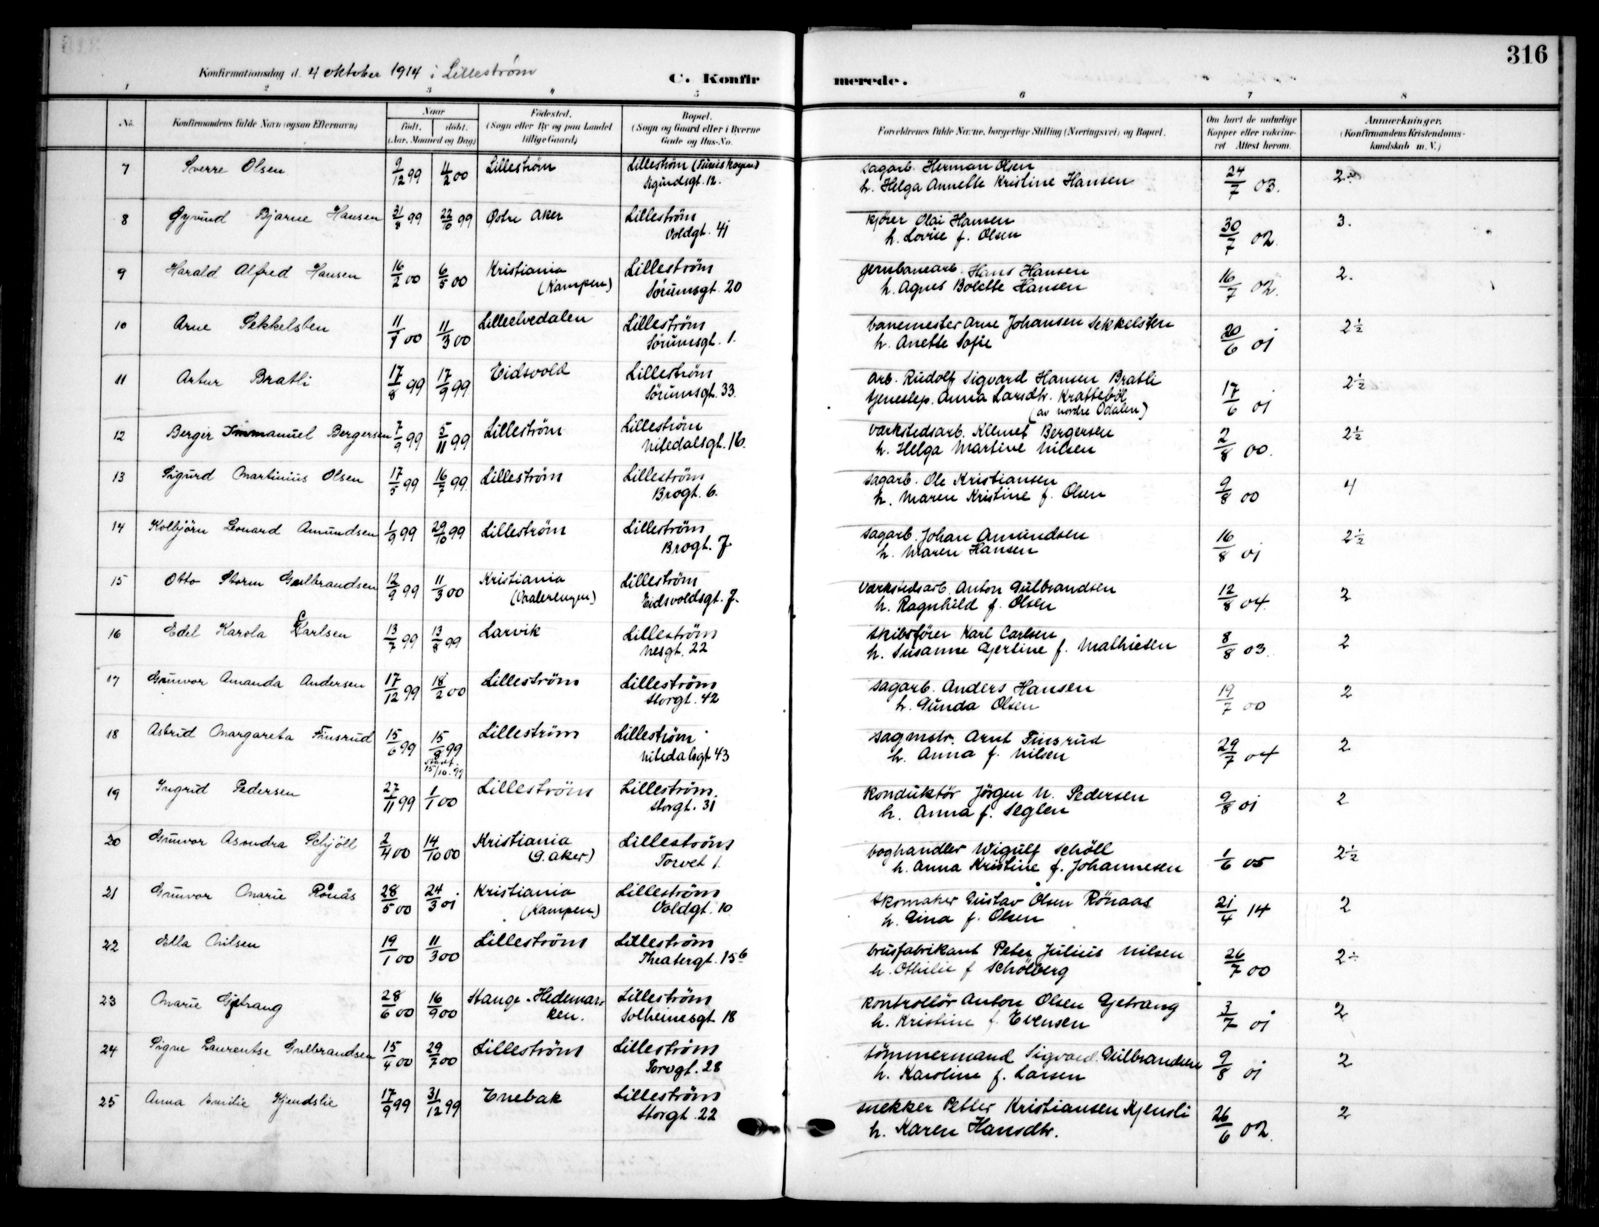 316
Konfirmationsdag d. 4 oktober 1914 i Lilleström
C. Konfirmerede.
1 2 3 4 5 6 7 8
No. Konfirmandens fulde Navn (ogsaa Efternavn) Naar født. døbt. (Aar, Maaned og Dag) Fødested. (Sogn eller By og paa Landet tillige Gaard) Bopæl. (Sogn og Gaard eller i Byerne Gade og Hus-No. Forældrenes fulde Navne, borgerlige Stilling (Næringsvei) og Bopæl. Om havt de naturlige Kopper eller vaccineret. Attest herom. Anmerkninger. (Konfirmandens Kristendomskundskab m. V.)
7 Sverre Olsen 9/12 99 11/2 00 Lilleström Lilleström Sigurdsgt. 12. sagarb. Herman Olsen h. Helga Annette Kristine Hansen 24/7 03. 2
8 Øyvind Bjarne Hansen 31/8 99 22/10 99 Östre Aker Lilleström Voldgt. 41 kjörer Olai Hansen h. Lovise f. Olsen 30/7 02. 3.
9 Harald Alfred Hansen 16/2 00 6/5 00 Kristiania (Kampen) Lilleström Sörumsgt. 20 jernbanearb. Hans Hansen h. Agnes Bolette Hansen 16/7 02. 2.
10 Arne Sekkelsten 11/1 00 11/3 00 Lilleelvedalen Lilleström Sörumsgt. 1. banemester Arne Johansen Sekkelsten h. Anette Sofie 20/6 01 2½
11 Artur Bratli 17/8 99 17/9 99 Eidsvold Lilleström Sörumsgt. 33. arb. Rudolf Sigvard Hansen Bratli tjenestep. Anna Larsdtr. Kratteböl (av nordre Odalen) 17/6 01 2½
12 Berger Immanuel Bergersen 7/9 99 5/11 99 Lilleström Lilleström Nitedalsgt. 16. værkstedsarb. Klemet Bergersen h. Helga Martine Nilsen 2/8 00. 2½
13 Sigurd Martinius Olsen 17/5 99 16/7 99 Lilleström Lilleström Brogt. 6. sagarb. Ole Kristiansen h. Maren Kristine f. Olsen 9/8 00 4
14 Kolbjörn Leonard Amundsen 1/9 99 29/10 99 Lilleström Lilleström Brogt. 7 sagarb. Johan Amundsen h. Maren Hansen 16/8 01 2½
15 Otto Storm Gulbrandsen 12/9 99 11/3 00 Kristiania (Vaalerengen) Lilleström Eidsvoldsgt. 7. værkstedsarb. Anton Gulbrandsen h. Ragnhild f. Olsen 12/8 04 2
16 Edel Karola Carlsen 13/7 99 13/8 99 Larvik Lilleström Nesgt. 22 skibsförer Karl Carlsen h. Susanne Gjertine f. Mathiesen 8/8 03. 2
17 Gunvor Amanda Andersen 17/12 99 18/2 00 Lilleström Lilleström Storgt. 42 sagarb. Anders Hansen h. Gunda Olsen 19/7 00 2
18 Astrid Margareta Finsrud 15/6 99 15/8 99 15/10 99 Lilleström Lilleström Nitedalsgt 43 sagmstr. Arnt Finsrud h. Anna f. Nilsen 29/7 04 2
19 Ingrid Pedersen 27/11 99 1/1 00 Lilleström Lilleström. Storgt. 31 konduktör Jörgen N. Pedersen h. Anna f. Seglen 9/8 01 2
20 Gunvor Asondra Schjöll 2/4 00 14/10 00 Kristiania (G. aker) Lilleström Torvet 1. boghandler Wigulf Schöll h. Anna Kristine f. Johannesen 1/6 05 2½
21 Gunvor Marie Rönås 28/5 00 24/3 01 Kristiania (Kampen) Lilleström Voldgt. 10 skomaker Gustav Olsen Rönaas h. Gina f. Olsen 21/4 14 2
22 Ella Nilsen 19/1 00 11/3 00 Lilleström Lilleström Theatergt. 15b brusfabrikant Peter Julius Nilsen h. Othilie f Schölberg 26/7 00 2÷
23 Marie Gjetrang 28/6 00 16/9 00 Stange - Hedemarken. Lilleström Solheimsgt 18 kontrollör Anton Olsen Gjetrang h. Kristine f. Evensen 3/7 01 2
24 Signe Laurentse Gulbrandsen 15/4 00 29/7 00 Lilleström Lilleström Torvgt. 28 tömmermand Sigvard Gulbrandsen h. Karoline f. Larsen 9/8 01 2
25 Anna Emilie Kjendslie 17/9 99 31/12 99 Enebak Lilleström Storgt. 22 snekker Petter Kristiansen Kjensli h. Karen Hansdtr. 26/6 02. 2